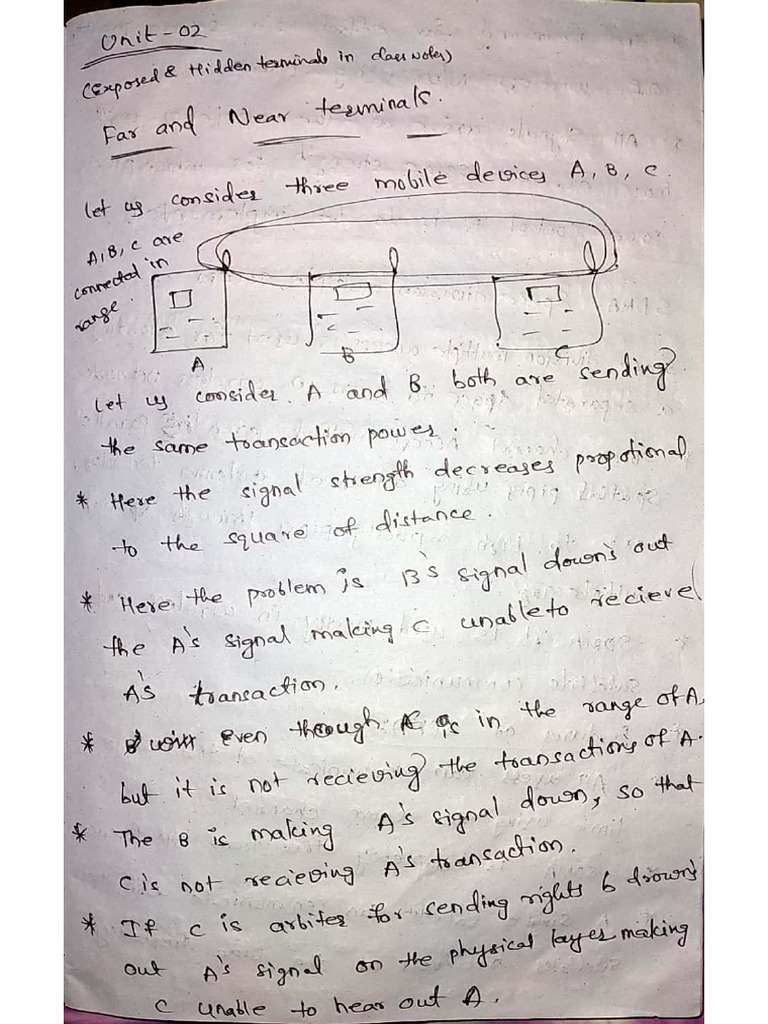 Unit-02
(Exposed & Hidden terminals in class notes)
Far and Near terminals.
let us consider three mobile devices A, B, C.
A,B, C are
connected in
range.
A
B
C
let us consider A and B both are sending
the same transaction power.
* Here the signal strength decreases propotional
to the square of distance.
* Here the problem is B's signal down's out
the A's signal making C unable to recieve
A's transaction.
* even through C is in the range of A,
but it is not recieving the transactions of A.
* The B is making A's signal down, so that
C is not recieving A's transaction.
* If C is arbiter for sending rights b drown's
out A's signal on the physical layer making
C unable to hear out A.